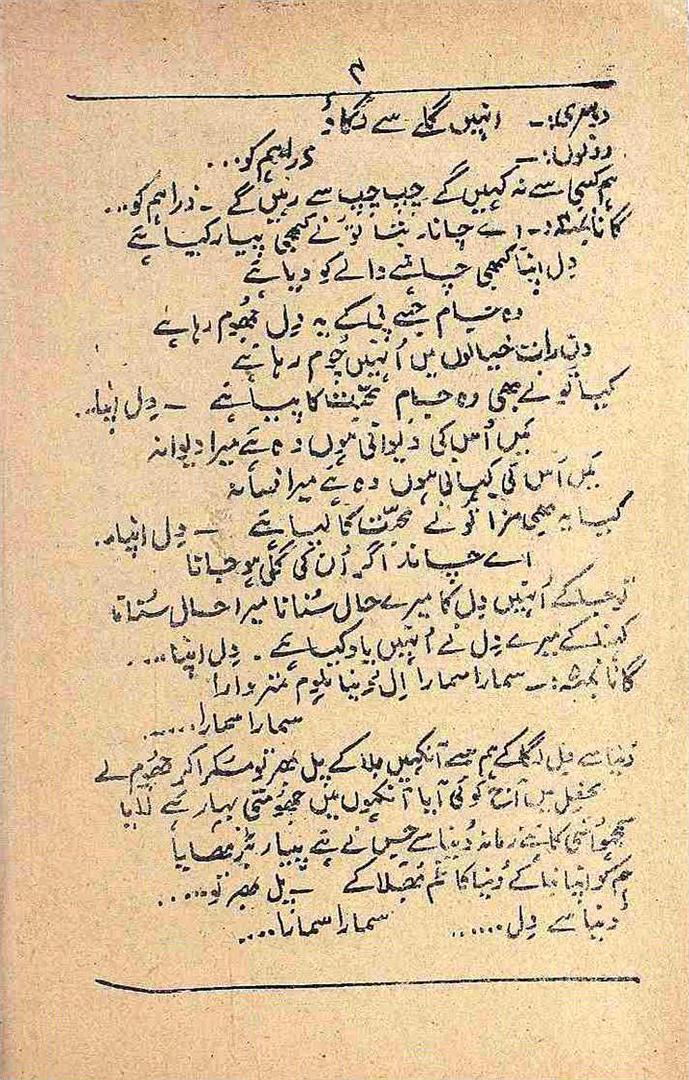 ۴
دوسری:۔ انہیں گلے سے لگاؤ
دونوں:۔ ذرا ہم کو...
ہم کسی سے نہ کہیں گے چپ چپ سے رہیں گے ۔ ذرا ہم کو...
گانا نمبر:۔ اے چاند بتا تو نے کبھی پیار کیا ہے
دِل اپنا کبھی چاہنے والے کو دیا ہے
وہ جام جسے پی کے یہ دِل جھوم رہا ہے
دن رات خیالوں میں اُنہیں چُوم رہا ہے
کیا تو نے بھی وہ جام محبّت کا پیا ہے ۔ دِل اپنا...
میں اُس کی دیوانی ہوں وہ ہے میرا دیوانہ
میں اُس کی کہانی ہوں وہ ہے میرا فسانہ
کیا یہ بھی مزا تو نے محبّت کا لیا ہے ۔ دِل اپنا..
اے چاند اگر اُن کی گلی ہو جانا
تو جا کے اُنہیں دِل کا میرے حال سُنانا میرا حال سُنانا
کہنا کے میرے دِل نے اُنہیں یاد کیا ہے ۔ دِل اپنا....
گانا نمبر:۔ سمارا سمارا اِل دُنیا
سمارا سمارا.....
دُنیا سے دِل لگا کے ہم سے آنکھیں ملا کے پل بھر تو مسکرا کر جھوم لے
محفل میں آج کوئی آیا آنکھوں میں جھومتی بہار ہے لایا
اُسی کا ہے زمانہ دُنیا سے جس نے ہے پیار بڑھایا
ہم کو اپنا بنا کے دُنیا کا غم بھلا کے ۔ پل بھر تو.....
دُنیا سے دِل...... سمارا سمارا....